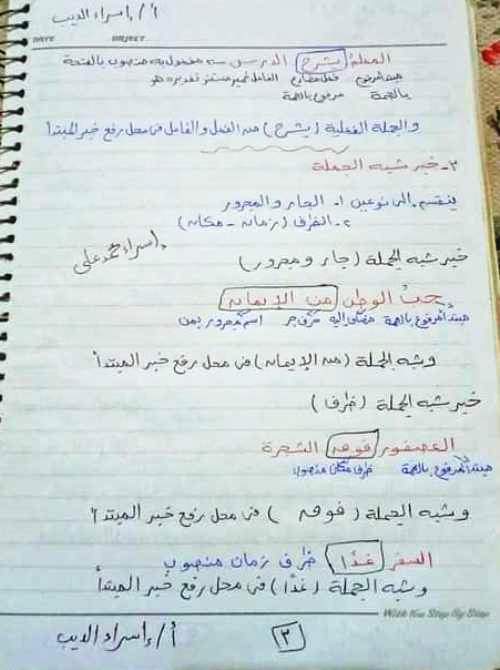 أ/إسراء الديب
DATE SUBJECT
المعلمُ يشرح الدرس ← مفعول به منصوب بالفتحة
مبتدأ مرفوع فعل مضارع الفاعل ضمير مستتر تقديره هو
بالضمة مرفوع بالضمة
والجملة الفعلية (يشرح) من الفعل والفاعل فى محل رفع خبر المبتدأ
٣- خبر شبه الجملة
ينقسم إلى نوعين ١- الجار والمجرور
٢- الظرف (زمان - مكان)
إسراء محمد على
خبر شبه الجملة (جار ومجرور)
حبُ الوطن من الإيمان
مبتدأ مرفوع بالضمة مضاف إليه حرف جر اسم مجرور بمن
وشبه الجملة (من الإيمان) فى محل رفع خبر المبتدأ
خبر شبه الجملة (ظرف)
العصفور فوق الشجرة
مبتدأ مرفوع بالضمة ظرف مكان منصوب
وشبه الجملة (فوق) فى محل رفع خبر المبتدأ
السفر غدًا ظرف زمان منصوب
وشبه الجملة (غدًا) فى محل رفع خبر المبتدأ
With You Step By Step
أ/إسراء الديب ٣